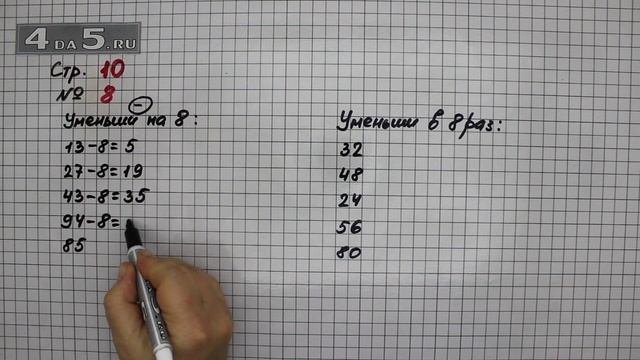 4 DA 5.RU
Стр. 10
№ 8
Уменьши на 8:
13-8=5
27-8=19
43-8=35
94-8=
85
Уменьши в 8 раз:
32
48
24
56
80